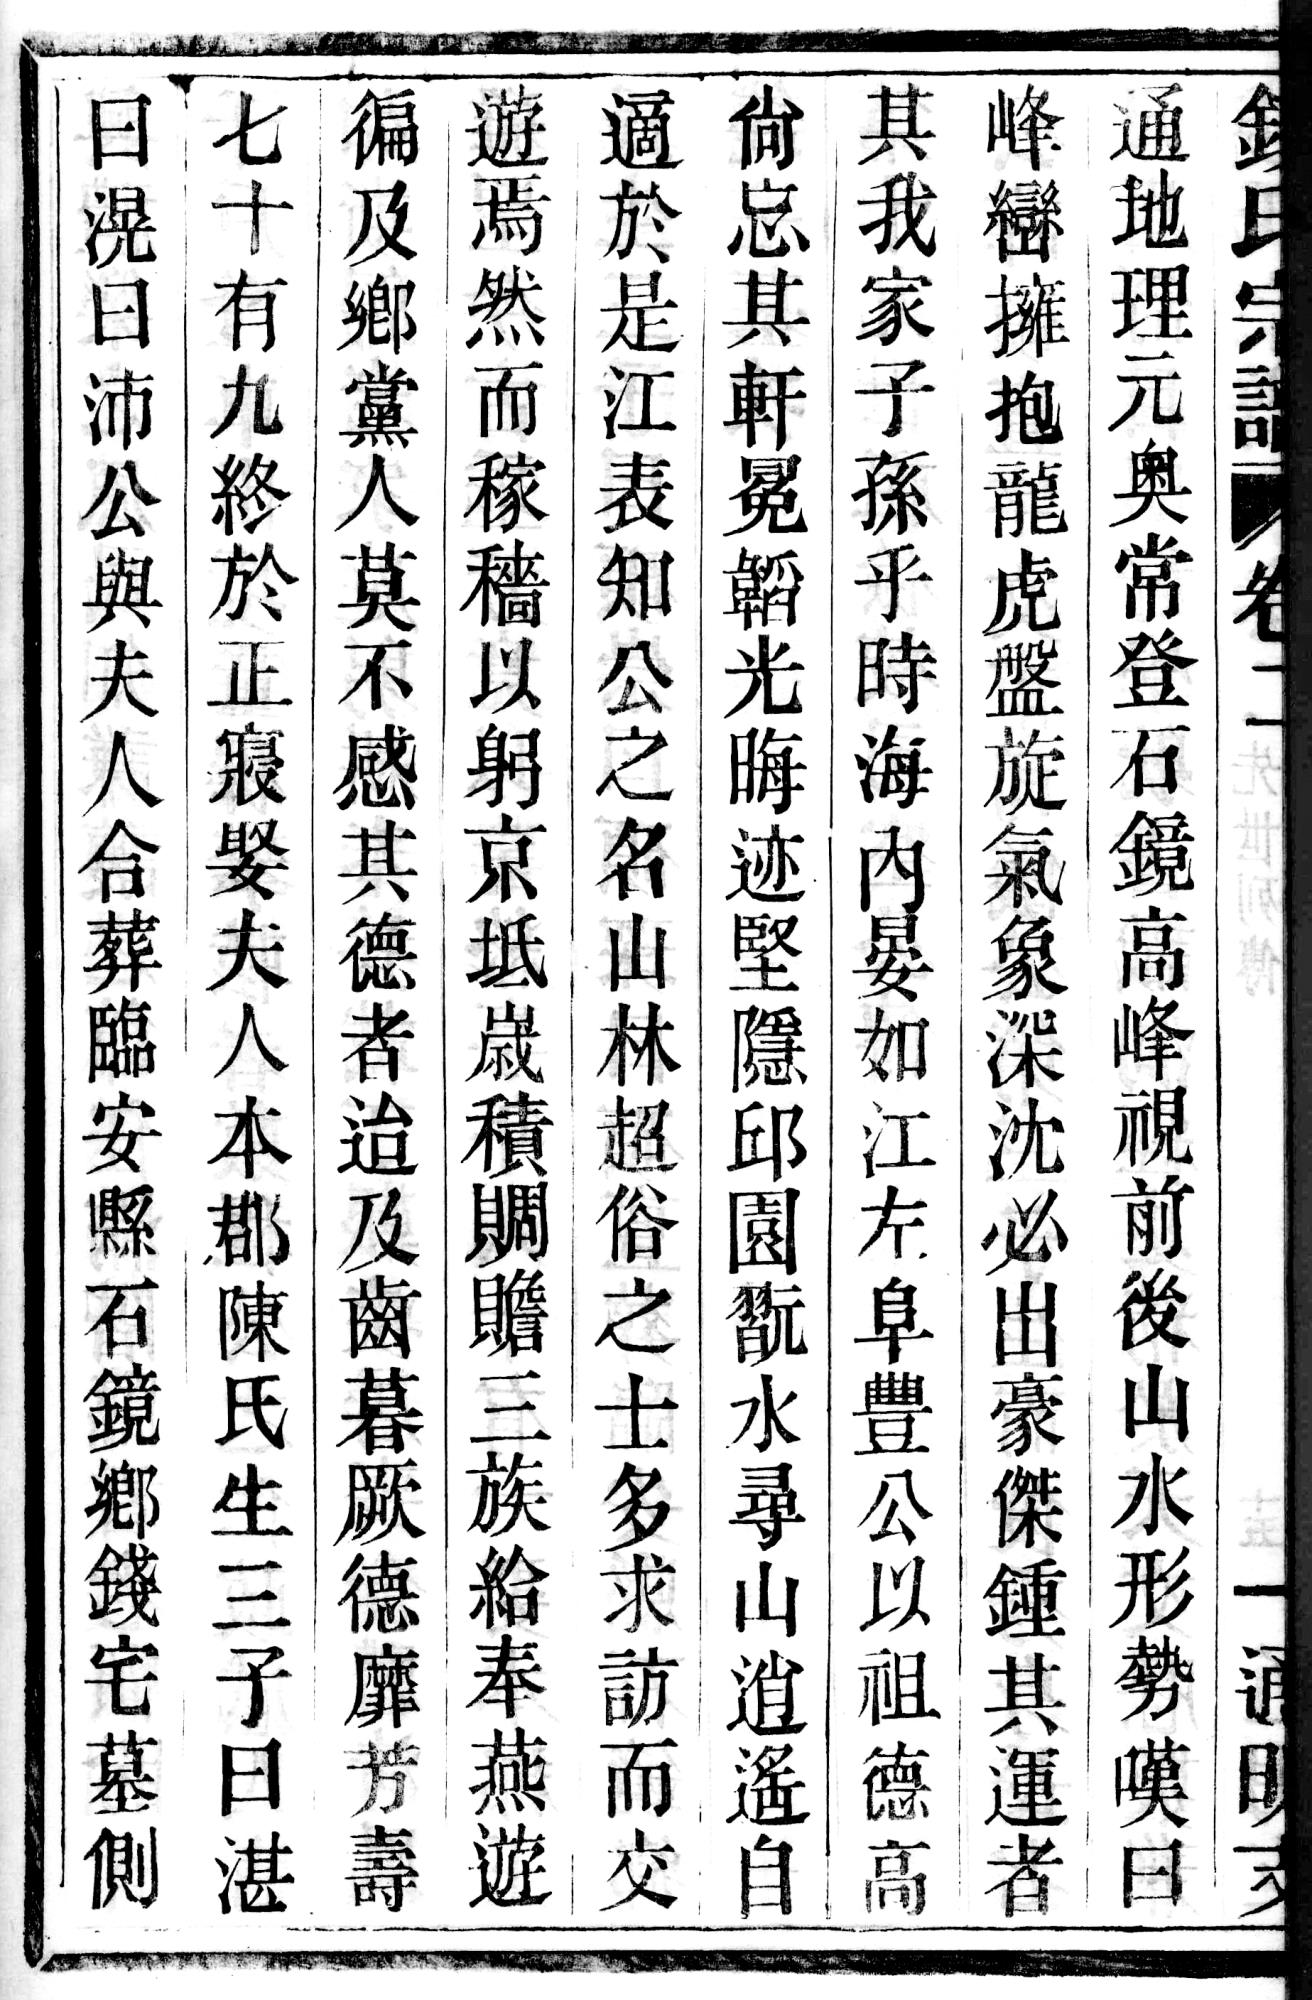 錢氏宗譜 卷二 一 通明支
通地理元奧常登石鏡高峰視前後山水形勢嘆曰
峰巒擁抱龍虎盤旋氣象深沈必出豪傑鍾其運者
其我家子孫乎時海內晏如江左阜豐公以祖德高
尙忘其軒冕韜光晦迹堅隱邱園翫水尋山逍遙自
適於是江表知公之名山林超俗之士多求訪而交
遊焉然而稼穡以躬京坻歲積賙贍三族給奉燕遊
徧及鄉黨人莫不感其德者迨及齒暮厥德靡芳壽
七十有九終於正寢娶夫人本郡陳氏生三子曰湛
曰滉曰沛公與夫人合葬臨安縣石鏡鄉錢宅墓側